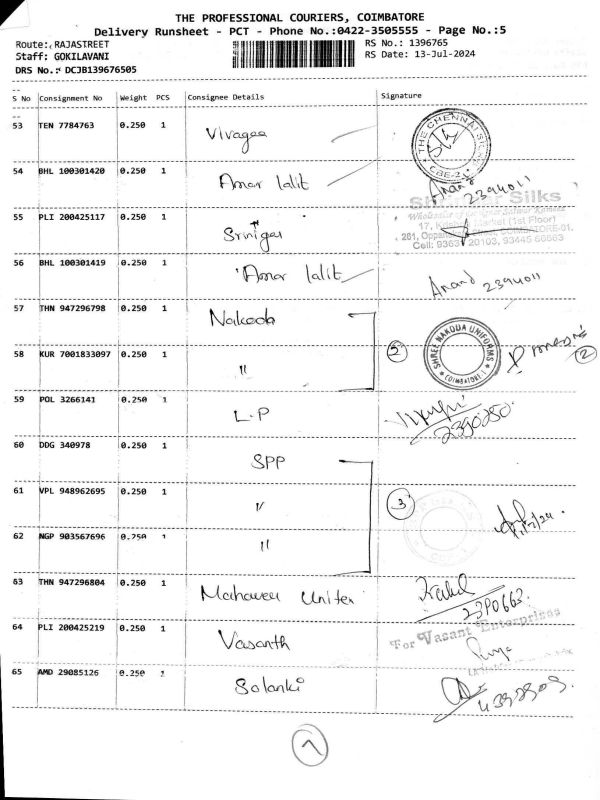 THE PROFESSIONAL COURIERS, COIMBATORE
Delivery Runsheet - PCT - Phone No.:0422-3505555 - Page No.:5
Route: RAJASTREET RS No.: 1396765
Staff: GOKILAVANI RS Date: 13-Jul-2024
DRS No.: DCJB139676505
S No Consignment No Weight PCS Consignee Details Signature
53 TEN 7784763 0.250 1 Vivagaa THE CHENNAI SILKS CBE-
54 BHL 100301420 0.250 1 Amar lalit Anand 2394011
Silks
55 PLI 200425117 0.250 1 Srinigar
17, Market (1st Floor)
COIMBATORE-01.
Cell: 20103, 93445 60663
56 BHL 100301419 0.250 1 Amar lalit Anand 2394011
57 THN 947296798 0.250 1 Nakoda
58 KUR 7001833097 0.250 1 " SHREE NAKODA UNIFORMS COIMBATORE-1 2
59 POL 3266141 0.250 1 L.P 2390250
60 DDG 340978 0.250 1 SPP
61 VPL 948962695 0.250 1 " 3
62 NGP 903567696 0.250 1 "
63 THN 947296804 0.250 1 Mahaveer Unifer 2390663
64 PLI 200425219 0.250 1 Vasanth For Vasant Enterprises
65 AMD 29085126 0.250 1 Solanki